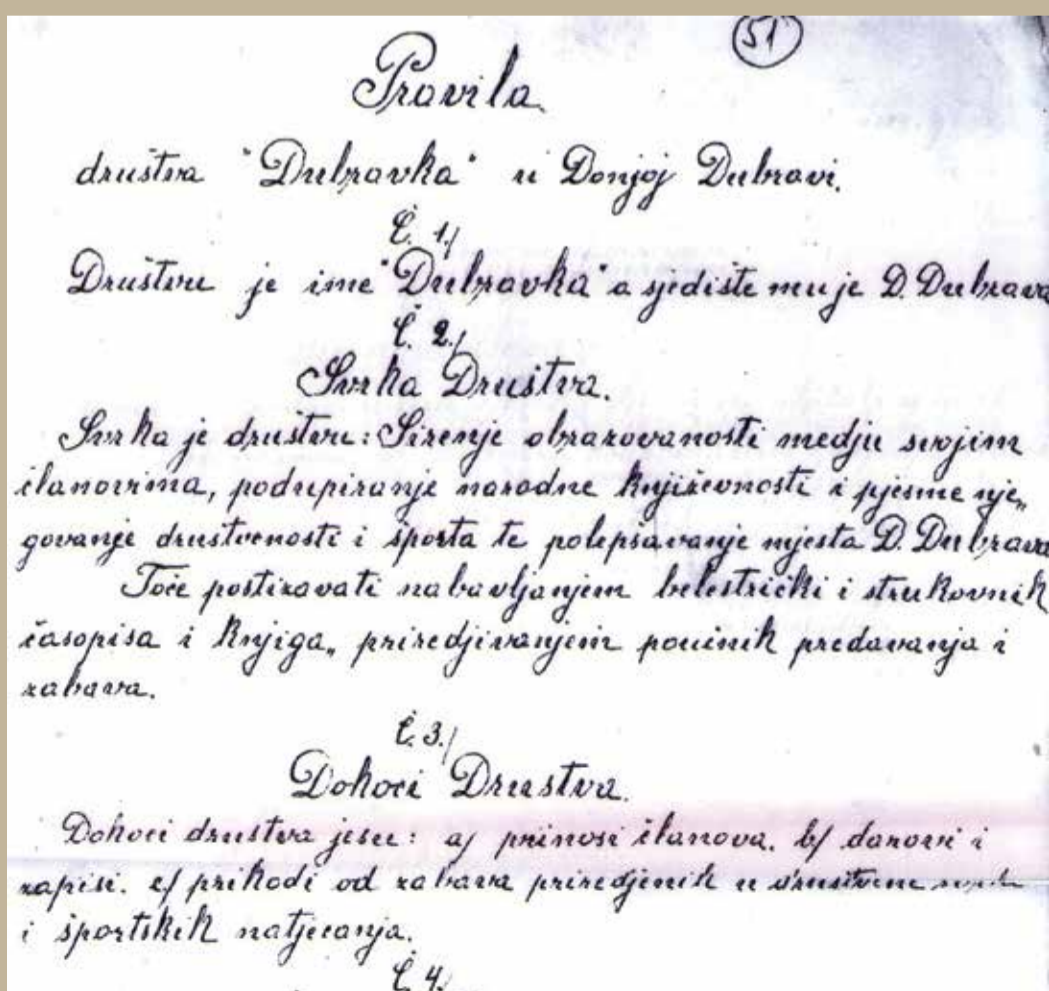 51
Pravila
društva "Dubravka" u Donjoj Dubravi.
Č. 1./
Društvu je ime "Dubravka" a sjedište mu je D. Dubrava
Č. 2./
Svrha Društva.
Svrha je društvu: Širenje obrazovanosti medju svojim
članovima, podupiranje narodne književnosti i pjesme nje„
govanje društvenosti i športa te polepšavanje mjesta D. Dubrava
Toće postizavati nabavljanjem belestrički i strukovnih
časopisa i knjiga„ priredjivanjem poučnih predavanja i
zabava.
Č. 3./
Dohoci Društva.
Dohoci društva jesu: a/ prinosi članova. b/ darovi i
zapisi. c/ prihodi od zabava priredjenih u društvene
i športskih natjecanja.
Č. 4./